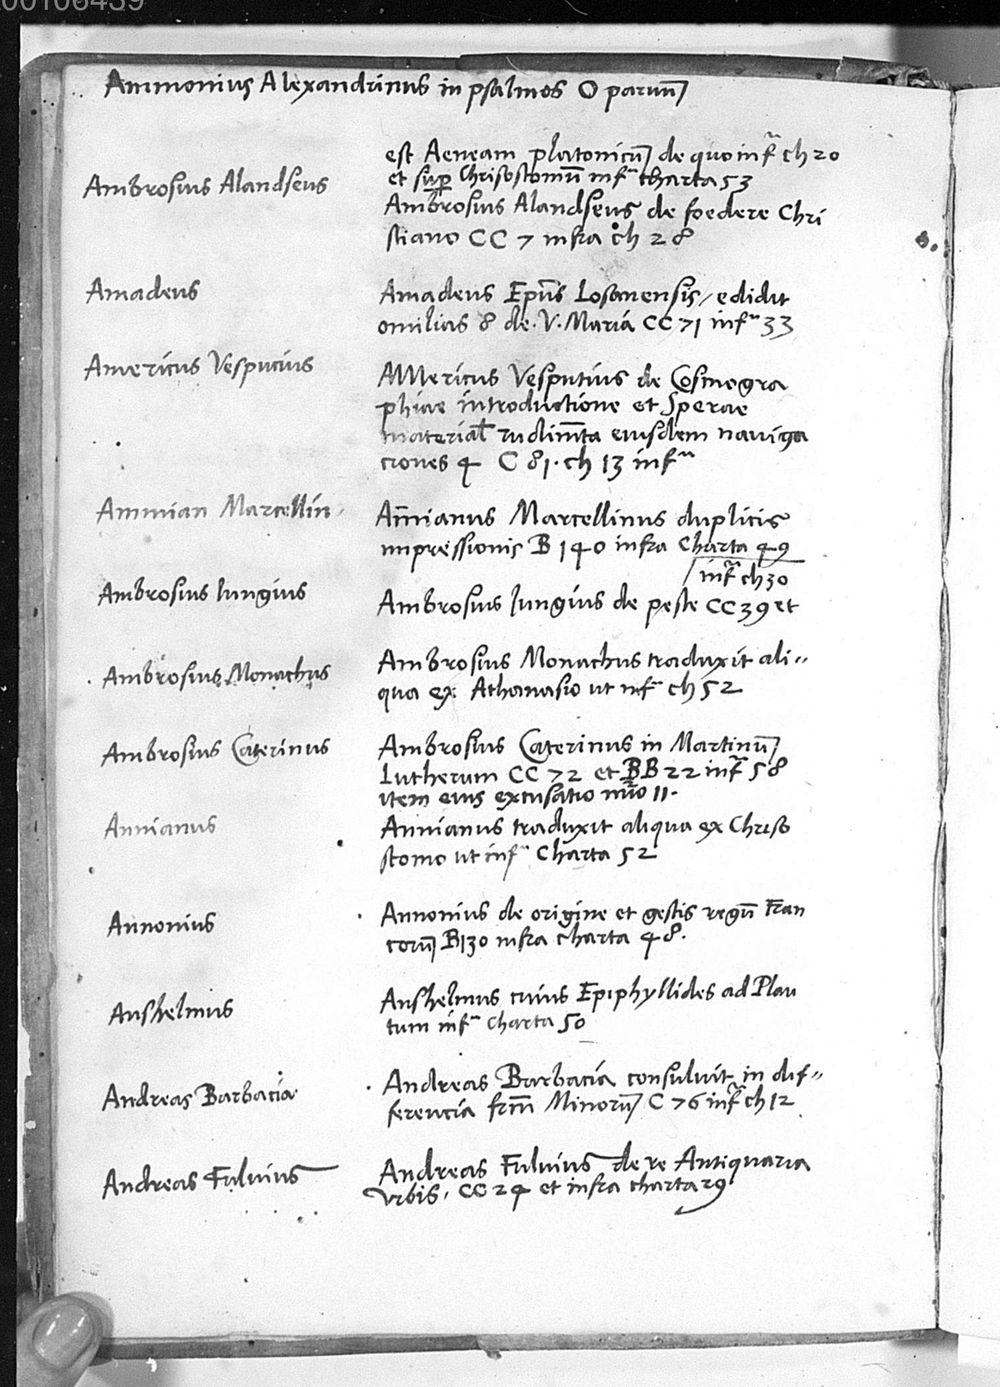 00106439
Ammonius Alexandrinus in psalmos O parum
est Aeneam platonicũ de quo infᵃ ch 20
Ambrosius Alandseus
et sup Chrisostomũ infᵃ charta 53
Ambrosius Alandseus de foedere Chri
stiano CC 7 infra ch 28
Amadeus
Amadeus Epũs Losanensis, edidit
omilias 8 de .V. Maria CC 71 infᵃ 33
Americus Vespucius
AMericus Vesputius de Cosmogra
phiae introductione et Sperae
material rudim̃ta eiusdem naviga
ciones 4 C 81. ch 13 infᵃ
Ammian Marcellin
Am̃ianus Marcellinus duplicis
impressionis B 140 infra Charta 49
infᵃ ch 30
Ambrosius Jungius
Ambrosius Jungius de peste CC 39 et
Ambrosius Monachus
Ambrosius Monachus traduxit ali"
qua ex Athanasio ut infᵃ ch 52
Ambrosius Caterinus
Ambrosius Caterinus in Martinũ
Lutherum CC 72 et BB 22 infᵃ 58
item eius excusatio nũo 11.
Annianus
Annianus traduxit aliqua ex Chriso
stomo ut infᵃ Charta 52
Annonius
Annonius de origine et gestis regũ Fran
corũ B 130 infra charta 48.
Anshelmus
Anshelmus cuius Epiphyllides ad Plau
tum infᵃ charta 50
Andreas Barbacia
Andreas Barbacia consuluit in dif"
ferencia frm̃ Minorũ C 76 infᵃ ch 12
Andreas Fulvius
Andreas Fulvius de re Antiquaria
Urbis, CC 24 et infra charta 29